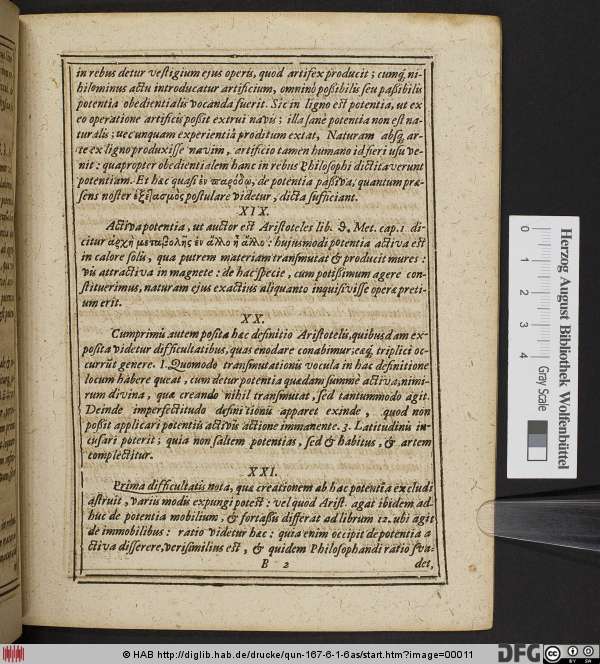 in rebus detur vestigium ejus operis, quod artifex producit; cumq́, ni-
hilominus actu introducatur artificium, omninò possibilis seu passibilis
potentia obedientialis vocanda fuerit. Sic in ligno est potentia, ut ex
eo operatione artificis possit extrui navis; illa sanè potentia non est na-
turalis; necunquam experientiâ proditum extat, Naturam absq, ar-
te ex ligno produxisse navim, artificio tamen humano id fieri usu ve-
nit: quapropter obedientialem hanc in rebus Philosophi dictitaverunt
potentiam. Et hæc quasi ἐν παρόδῳ, de potentia passiva, quantum præ-
sens noster ἐξετασμὸς postulare videtur, dicta sufficiant.
XIX.
Activa potentia, ut auctor est Aristoteles lib. 9. Met. cap. 1 di-
citur ἀρχὴ μεταβολῆς ἐν ἄλλο ἢ ἄλλο: hujusmodi potentia activa est
in calore solis, qua putrem materiam transmutat & producit mures:
vis attractiva in magnete: de hac specie, cum potissimum agere con-
stituerimus, naturam ejus exactius aliquanto inquisivisse operæ preti-
um erit.
XX.
Cumprimis autem posita hæc definitio Aristotelis, quibusdam ex-
posita videtur difficultatibus, quas enodare conabimur; eæq́, triplici oc-
currũt genere. 1. Quomodo transmutationis vocula in hac definitione
locum habere queat, cum detur potentia quædam summè activa, nimi-
rum divina, quæ creando nihil transmutat, sed tantummodo agit.
Deinde imperfectitudo definitionis apparet exinde, quod non
possit applicari potentiis activis actione immanente. 3. Latitudinis in-
cusari poterit; quia non saltem potentias, sed & habitus, & artem
complectitur.
XXI.
Prima difficultatis nota, quæ creationem ab hac potentia excludi
astruit, variis modis expungi potest: vel quod Arist. agat ibidem ad-
huc de potentia mobilium, & fortassis differat ad librum 12. ubi agit
de immobilibus: ratio videtur hæc: quia enim occipit de potentia a-
ctiva disserere, verisimilius est, & quidem Philosophandi ratio sva-
B 2 det,
0 1 2 3 4
Gray Scale
Herzog August Bibliothek Wolfenbüttel
© HAB http://diglib.hab.de/drucke/qun-167-6-1-6as/start.htm?image=00011
DFG